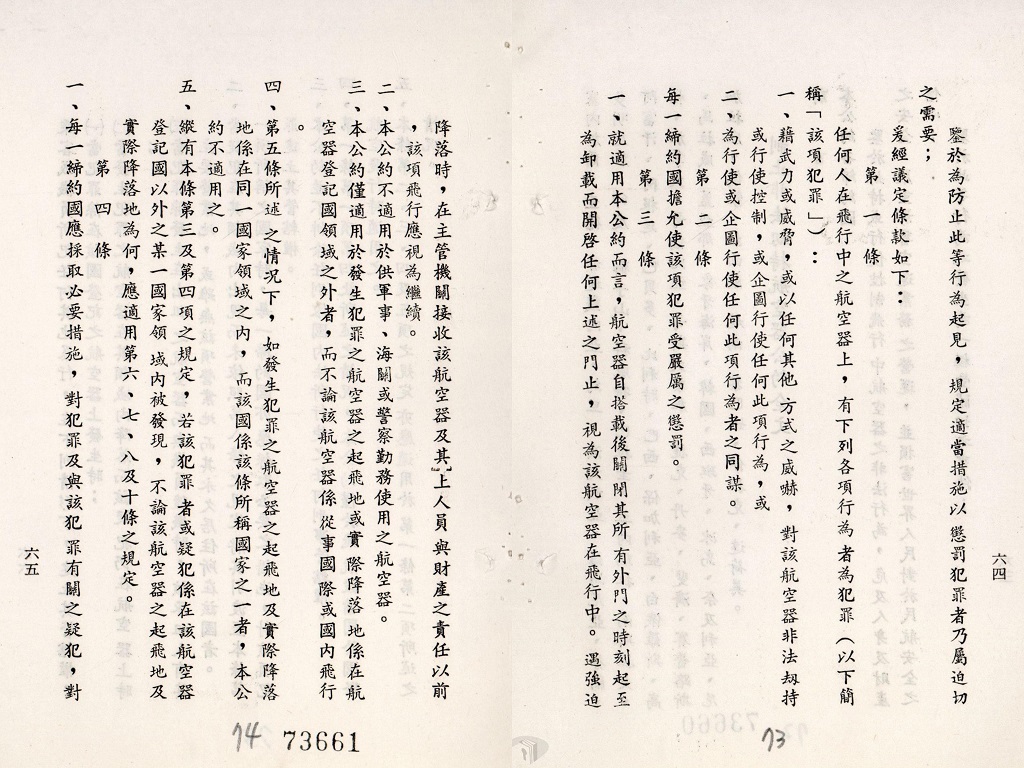 鑒於為防止此等行為起見，規定適當措施以懲罰犯罪者乃屬迫切
之需要；
爰經議定條款如下：
第一條
任何人在飛行中之航空器上，有下列各項行為者為犯罪（以下簡
稱「該項犯罪」）：
一、藉武力或威脅，或以任何其他方式之威嚇，對該航空器非法刼持
或行使控制，或企圖行使任何此項行為，或
二、為行使或企圖行使任何此項行為者之同謀。
第二條
每一締約國擔允使該項犯罪受嚴厲之懲罰。
第三條
一、就適用本公約而言，航空器自搭載後關閉其所有外門之時刻起至
為卸載而開啓任何上述之門止，視為該航空器在飛行中。遇強迫
六四
73
降落時，在主管機關接收該航空器及其上人員與財產之責任以前
，該項飛行應視為繼續。
二、本公約不適用於供軍事、海關或警察勤務使用之航空器。
三、本公約僅適用於發生犯罪之航空器之起飛地或實際降落地係在航
空器登記國領域之外者，而不論該航空器係從事國際或國內飛行
。
四、第五條所述之情況下，如發生犯罪之航空器之起飛地及實際降落
地係在同一個國家領域之內，而該國係該條所稱國家之一者，本公
約不適用之。
五、縱有本條第三及第四項之規定，若該犯罪者或疑犯係在該航空器
登記國以外之某一國家領域內被發現，不論該航空器之起飛地及
實際降落地為何，應適用第六、七、八及十條之規定。
第四條
一、每一締約國應採取必要措施，對犯罪及與該犯罪有關之疑犯，對
六五
74
73661